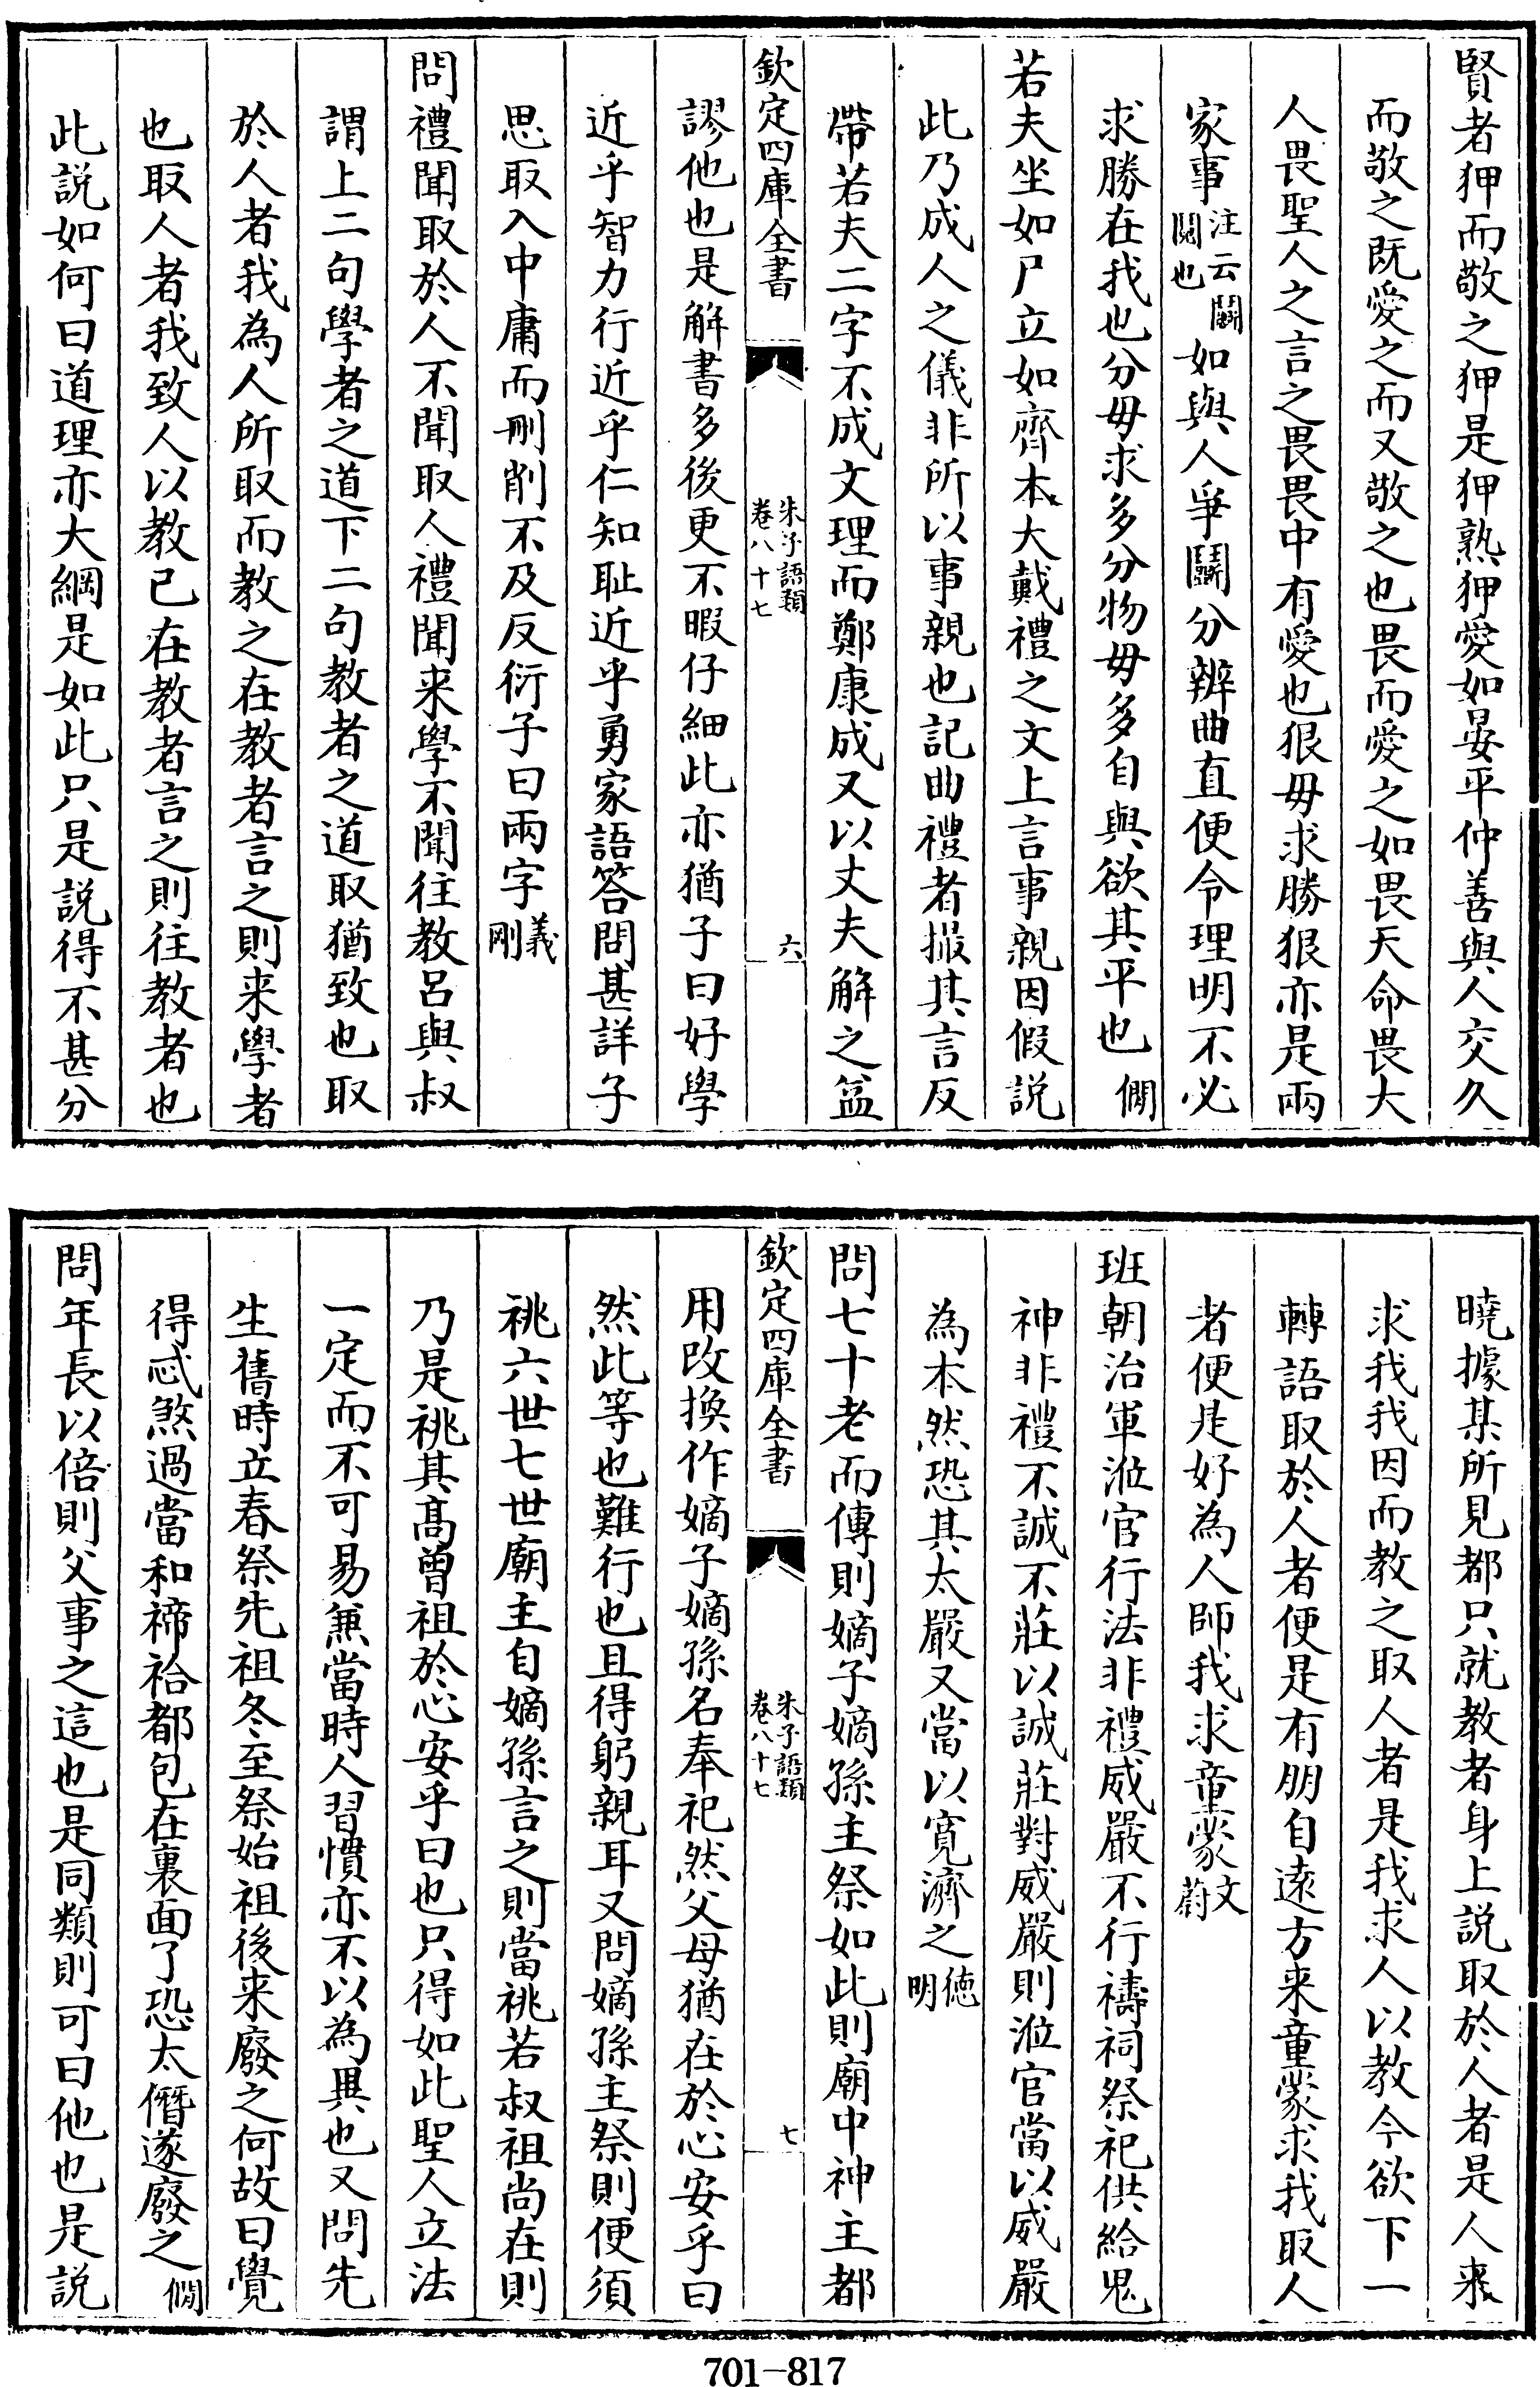 賢者狎而敬之狎是狎熟狎愛如晏平仲善與人交久
而敬之既愛之而又敬之也畏而愛之如畏天命畏大
人畏聖人之言之畏畏中有愛也狠毋求勝狠亦是兩
家事注云鬬鬩也如與人爭鬪分辨曲直便令理明不必
求勝在我也分毋求多分物毋多自與欲其平也僩
若夫坐如尸立如齊本大戴禮之文上言事親因假説
此乃成人之儀非所以事親也記曲禮者撮其言反
帶若夫二字不成文理而鄭康成又以丈夫解之益
欽定四庫全書
朱子語類
卷八十七
六
謬他也是解書多後更不暇仔細此亦猶子曰好學
近乎智力行近乎仁知恥近乎勇家語答問甚詳子
思取入中庸而刪削不及反衍子曰兩字義剛
問禮聞取於人不聞取人禮聞来學不聞往教呂與叔
謂上二句學者之道下二句教者之道取猶致也取
於人者我為人所取而教之在教者言之則来學者
也取人者我致人以教已在教者言之則往教者也
此説如何曰道理亦大綱是如此只是説得不甚分
曉據某所見都只就教者身上説取於人者是人来
求我我因而教之取人者是我求人以教今欲下一
轉語取於人者便是有朋自逺方来童蒙求我取人
者便是好為人師我求童蒙文蔚
班朝治軍涖官行法非禮威嚴不行禱祠祭祀供給鬼
神非禮不誠不莊以誠莊對威嚴則涖官當以威嚴
為本然恐其太嚴又當以寛濟之徳明
問七十老而傳則嫡子嫡孫主祭如此則廟中神主都
欽定四庫全書
朱子語類
卷八十七
七
用改換作嫡子嫡孫名奉祀然父母猶在於心安乎曰
然此等也難行也且得躬親耳又問嫡孫主祭則便須
祧六世七世廟主自嫡孫言之則當祧若叔祖尚在則
乃是祧其髙曽祖於心安乎曰也只得如此聖人立法
一定而不可易兼當時人習慣亦不以為異也又問先
生舊時立春祭先祖冬至祭始祖後来廢之何故曰覺
得忒煞過當和禘祫都包在裏面了恐太僭遂廢之僩
問年長以倍則父事之這也是同類則可曰他也是説
701-817